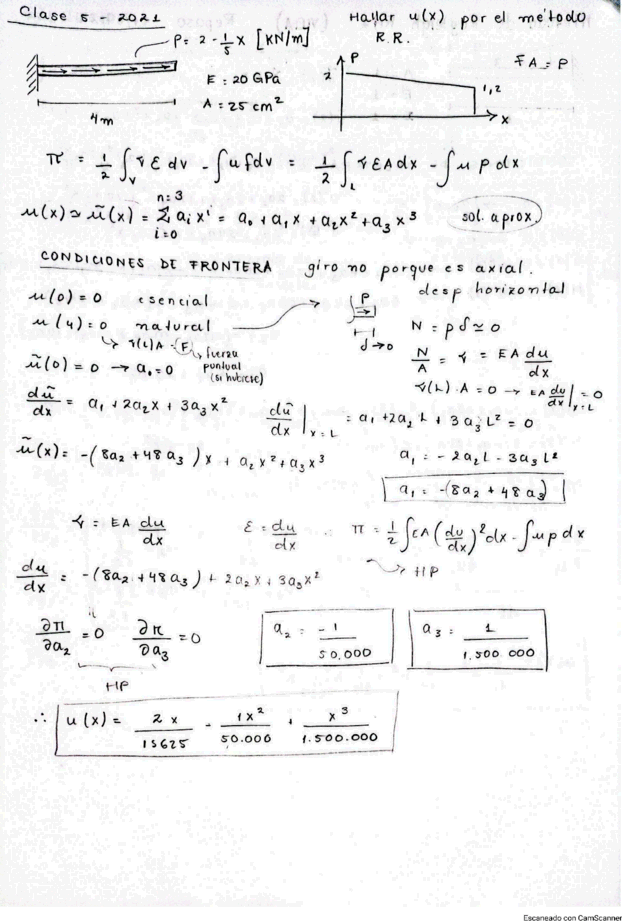 Clase 5 - 2021
Hallar u(x) por el método
R.R.
P = 2 - 1/5 x [KN/m]
E = 20 GPa
A = 25 cm²
4m
2
P
1,2
x
FA = P
π = 1/2 ∫_V σ ε dv - ∫ u f dv = 1/2 ∫_L σ ε A dx - ∫ u p dx
u(x) ≃ ũ(x) = Σ_{i=0}^{n=3} a_i x^i = a₀ + a₁x + a₂x² + a₃x³ sol. aprox.
CONDICIONES DE FRONTERA
giro no porque es axial.
desp horizontal
u(0) = 0 esencial
u(4) = 0 natural
σ(L)A = F → fuerza
puntual
(si hubiese)
P
δ → 0
N = p δ ≃ 0
N/A = σ = EA du/dx
σ(L) . A = 0 → EA du/dx |x=L = 0
ũ(0) = 0 → a₀ = 0
dũ/dx = a₁ + 2a₂x + 3a₃x²
dũ/dx |x=L = a₁ + 2a₂L + 3a₃L² = 0
ũ(x) = -(8a₂ + 48a₃)x + a₂x² + a₃x³
a₁ = -2a₂L - 3a₃L²
a₁ = -(8a₂ + 48a₃)
σ = EA du/dx
ε = du/dx
π = 1/2 ∫ EA (du/dx)² dx - ∫ u p dx
HP
du/dx = -(8a₂ + 48a₃) + 2a₂x + 3a₃x²
∂π/∂a₂ = 0 ∂π/∂a₃ = 0
HP
a₂ = -1/50.000
a₃ = 1/1.500.000
∴ u(x) = 2x/15625 - 1x²/50.000 + x³/1.500.000
Escaneado con CamScanner